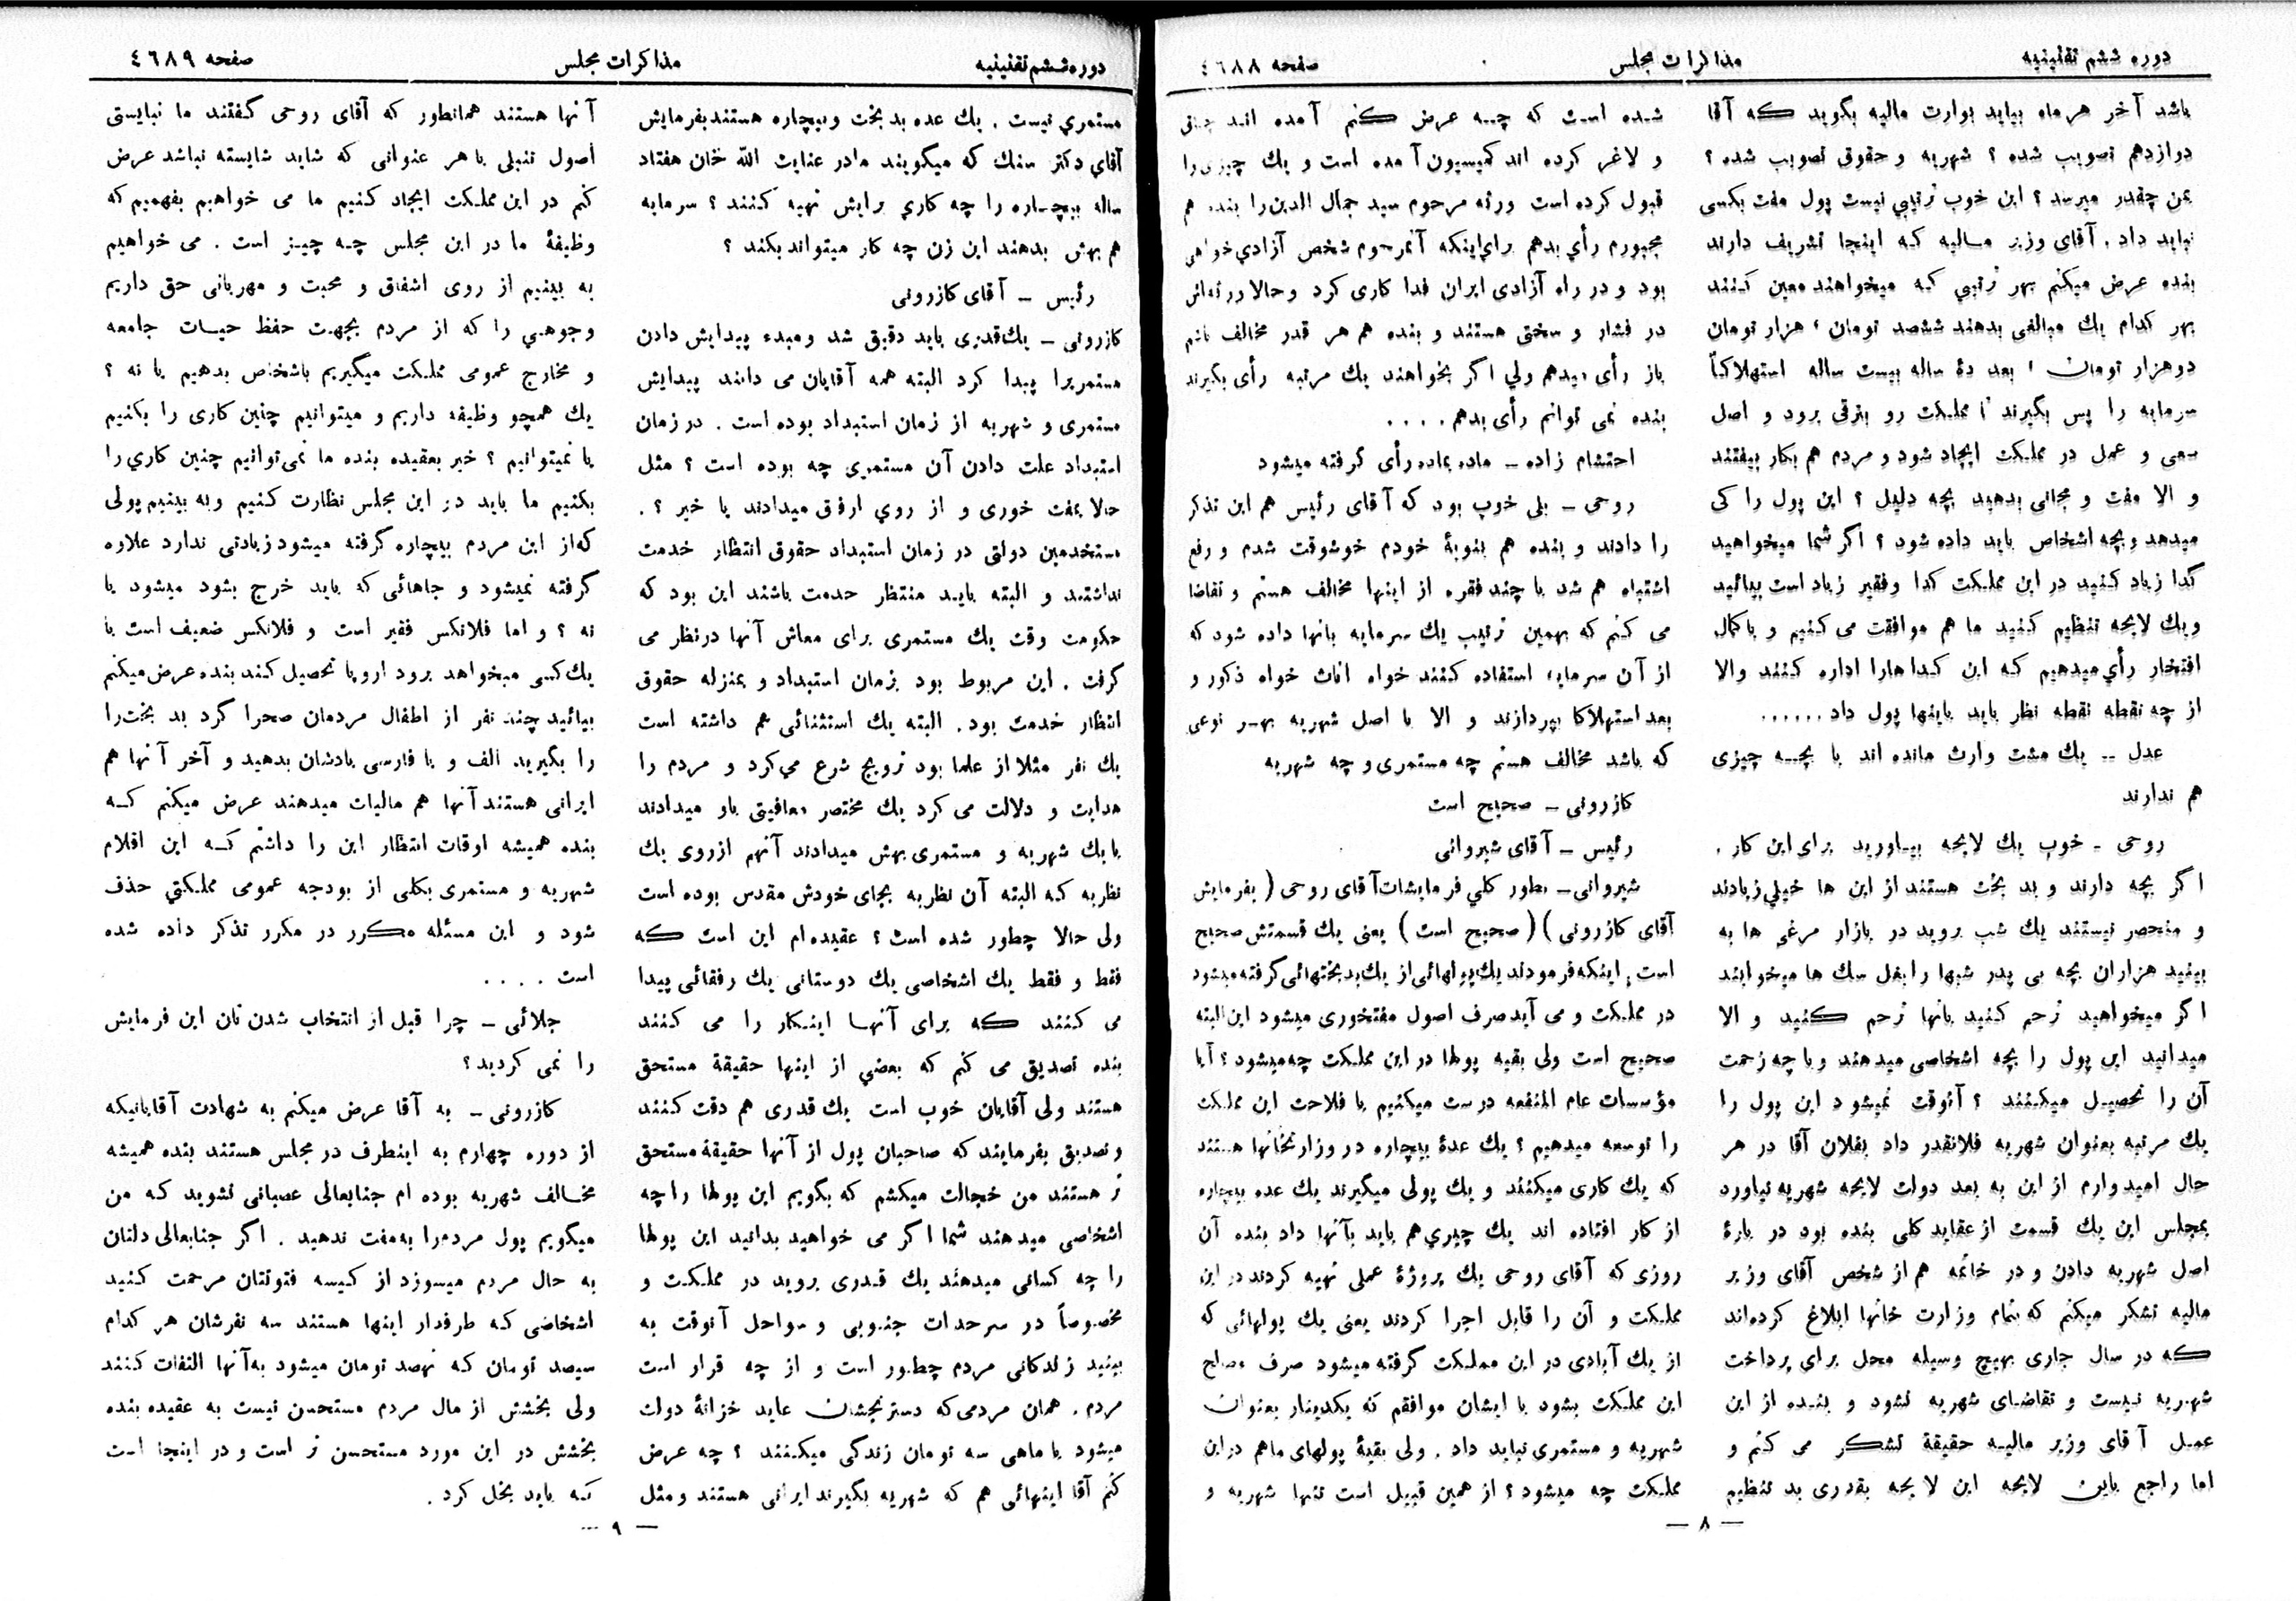 دوره ششم تقنینیه
مذاکرات مجلس
صفحه ٤٦٨٨
باشد آخر هر ماه بیاید بوارت مالیه بگوید که آقا
دوازدهم تصویب شده ؟ شهریه و حقوق تصویب شده ؟
بمن چقدر میرسد ؟ این خوب ترتیبی نیست پول مفت بکسی
نباید داد . آقای وزیر مالیه که اینجا تشریف دارند
بنده عرض میکنم بهر ترتیبی که میخواهند معین کنند
بهر کدام یك مبالغی بدهند ششصد تومان ، هزار تومان
دوهزار تومان ، بعد دۀ ساله بیست ساله استهلاکاً
سرمایه را پس بگیرند تا مملکت رو بترقی برود و اصل
سعی و عمل در مملکت ایجاد شود و مردم هم بکار بیفتند
و الا مفت و مجانی بدهید بچه دلیل ؟ این پول را کی
میدهد و بچه اشخاص باید داده شود ؟ اگر شما میخواهید
گدا زیاد کنید در این مملکت گدا وفقیر زیاد است بیائید
ویك لایحه تنظیم کنید ما هم موافقت می کنیم و با کمال
افتخار رأي میدهیم که این گداهارا اداره کنند والا
از چه نقطه نقطه نظر باید باینها پول داد......
عدل -- یك مشت وارث مانده اند با بچه چیزی
هم ندارند
روحی - خوب یك لایحه بیاورید برای این کار .
اگر بچه دارند و بد بخت هستند از این ها خیلي زیادند
و منحصر نیستند یك شب بروید در بازار مرغی ها به
بینید هزاران بچه بی پدر شبها را بغل سك ها میخوابند
اگر میخواهید ترحم کنید بانها ترحم کنید و الا
میدانید این پول را بچه اشخاصی میدهند و با چه زحمت
آن را تحصیل میکنند ؟ آنوقت نمیشود این پول را
یك مرتبه بعنوان شهریه فلانقدر داد بفلان آقا در هر
حال امیدوارم از این به بعد دولت لایحه شهریه نیاورد
بمجلس این یك قسمت از عقاید کلی بنده بود در بارۀ
اصل شهریه دادن و در خاتمه هم از شخص آقای وزیر
مالیه تشکر میکنم که بتمام وزارت خانها ابلاغ کرده‌اند
که در سال جاری بهیچ وسیله محل برای پرداخت
شهریه نیست و تقاضای شهریه نشود و بنده از این
عمل آقای وزیر مالیه حقیقة تشکر می کنم و
اما راجع باین لایحه این لایحه بقدری بد تنظیم
شده است که چه عرض کنم آمده اند چاق
و لاغر کرده اند کمیسیون آمده است و یك چیزی را
قبول کرده است ورثه مرحوم سید جمال الدین را بنده هم
مجبورم رأي بدهم براي اینکه آنمرحوم شخص آزادي خواهی
بود و در راه آزادی ایران فدا کاری کرد و حالا ورثه‌اش
در فشار و سختی هستند و بنده هم هر قدر مخالف باشم
باز رأی میدهم ولي اگر بخواهند یك مرتبه رأی بگیرند
بنده نمی توانم رأی بدهم . . . .
احتشام زاده - ماده بماده رأی گرفته میشود
روحی - بلی خوب بود که آقای رئیس هم این تذکر
را دادند و بنده هم بنوبۀ خودم خوشوقت شدم و رفع
اشتباه هم شد با چند فقره از اینها مخالف هستم و تقاضا
می کنم که بهمین ترتیب یك سرمایه بانها داده شود که
از آن سرمایه استفاده کنند خواه اناث خواه ذکور و
بعد استهلاکا بپردازند و الا با اصل شهریه بهر نوعی
که باشد مخالف هستم چه مستمری و چه شهریه
کازرونی - صحیح است
رئیس - آقای شیروانی
شیروانی - بطور کلي فرمایشات آقای روحی ( بفرمایش
آقای کازرونی ) ( صحیح است ) یعنی یك قسمتش صحیح
است ، اینکه فرمودند یك پولهائی از یك بدبختهائی گرفته میشود
در مملکت و می آید صرف اصول مفتخوری میشود این البته
صحیح است ولی بقیه پولها در این مملکت چه میشود ؟ آیا
مؤسسات عام المنفعه درست میکنیم یا فلاحت این مملکت
را توسعه میدهیم ؟ یك عدۀ بیچاره در وزارتخانها هستند
که یك کاری میکنند و یك پولی میگیرند یك عده بیچاره
از کار افتاده اند یك چیزي هم باید بآنها داد بنده آن
روزی که آقای روحی یك پروژۀ عملی تهیه کردند در این
مملکت و آن را قابل اجرا کردند یعنی یك پولهائی که
از یك آبادی در این مملکت گرفته میشود صرف مصالح
این مملکت بشود با ایشان موافقم که یکدینار بعنوان
شهریه و مستمری نباید داد . ولی بقیۀ پولهای ماهم در این
مملکت چه میشود ؟ از همین قبیل است تنها شهریه و
— ٨ —
دوره ششم تقنینیه
مذاکرات مجلس
صفحه ٤٦٨٩
مستمري نیست . یك عده بد بخت و بیچاره هستند بفرمایش
آقاي دکتر سنك که میگویند مادر عنایت الله خان هفتاد
ساله بیچاره را چه کاري برایش تهیه کنند ؟ سرمایه
هم بهش بدهند این زن چه کار میتواند بکند ؟
رئیس - آقای کازرونی
کازرونی - یك‌قدری باید دقیق شد ومبدء پیدایش دادن
مستمریرا پیدا کرد البته همه آقایان می دانند پیدایش
مستمری و شهریه از زمان استبداد بوده است . در زمان
استبداد علت دادن آن مستمري چه بوده است ؟ مثل
حالا بمفت خوری و از روي ارفاق میدادند یا خیر ؟ .
مستخدمین دولتی در زمان استبداد حقوق انتظار خدمت
نداشتند و البته باید منتظر خدمت باشند این بود که
حکومت وقت یك مستمری برای معاش آنها در نظر می
گرفت . این مربوط بود بزمان استبداد و بمنزله حقوق
انتظار خدمت بود . البته یك استثنائی هم داشته است
یك نفر مثلا از علما بود ترویج شرع می‌کرد و مردم را
هدایت و دلالت می کرد یك مختصر معافیتی باو میدادند
یا یك شهریه و مستمری بهش میدادند آنهم از روی یك
نظریه که البته آن نظریه بجای خودش مقدس بوده است
ولی حالا چطور شده است ؟ عقیده‌ام این است که
فقط و فقط یك اشخاصی یك دوستانی یك رفقائی پیدا
می کنند که برای آنها اینکار را می کنند
بنده تصدیق می کنم که بعضي از اینها حقیقة مستحق
هستند ولی آقایان خوب است یك قدری هم دقت کنند
و تصدیق بفرمایند که صاحبان پول از آنها حقیقة مستحق
تر هستند من خجالت میکشم که بگویم این پولها را چه
اشخاصی میدهند شما اگر می خواهید بدانید این پولها
را چه کسانی میدهند یك قدری بروید در مملکت و
مخصوصاً در سرحدات جنوبی و سواحل آنوقت به
بینید زندکانی مردم چطور است و از چه قرار است
مردم . همان مردمی که دسترنجشان عاید خزانۀ دولت
میشود با ماهی سه تومان زندگی میکنند ؟ چه عرض
کنم آقا اینهائی هم که شهریه بگیرند ایرانی هستند و مثل
آنها هستند همانطور که آقای روحی گفتند ما نبایستی
اصول تنبلی با هر عنوانی که شاید شایسته نباشد عرض
کنم در این مملکت ایجاد کنیم ما می خواهیم بفهمیم که
وظیفۀ ما در این مجلس چه چیز است . می خواهیم
به بینیم از روی اشفاق و محبت و مهربانی حق داریم
وجوهي را که از مردم بجهت حفظ حیات جامعه
و مخارج عمومی مملکت میگیریم باشخاص بدهیم یا نه ؟
یك همچو وظیفه داریم و میتوانیم چنین کاری را بکنیم
یا نمیتوانیم ؟ خیر بعقیده بنده ما نمی‌توانیم چنین کاري را
بکنیم ما باید در این مجلس نظارت کنیم و به بینیم پولی
که از این مردم بیچاره گرفته میشود زیادتی ندارد علاوه
گرفته نمیشود و جاهائی که باید خرج بشود میشود یا
نه ؟ و اما فلانکس فقیر است و فلانکس ضعیف است یا
یك کسی میخواهد برود اروپا تحصیل کند بنده عرض میکنم
بیائید چند نفر از اطفال مردمان صحرا گرد بد بخت را
را بگیرید الف و با فارسی یادشان بدهید و آخر آنها هم
ایرانی هستند آنها هم مالیات میدهند عرض میکنم که
بنده همیشه اوقات انتظار این را داشتم که این اقلام
شهریه و مستمری بکلی از بودجه عمومی مملکتي حذف
شود و این مسئله مکرر در مکرر تذکر داده شده
است . . . .
جلائی - چرا قبل از انتخاب شدن تان این فرمایش
را نمی کردید ؟
کازرونی - به آقا عرض میکنم به شهادت آقایانیکه
از دوره چهارم به اینطرف در مجلس هستند بنده همیشه
مخالف شهریه بوده ام جنابعالی عصبانی نشوید که من
میگویم پول مردم‌را به‌مفت ندهید . اگر جنابعالی دلتان
به حال مردم میسوزد از کیسه فتوتتان مرحمت کنید
اشخاضی که طرفدار اینها هستند سه نفرشان هر کدام
سیصد تومان که نهصد تومان میشود به‌آنها التفات کنند
ولی بخشش از مال مردم مستحسن نیست به عقیده بنده
بخشش در این مورد مستحسن تر است و در اینجا است
که باید بخل کرد .
— ٩ —